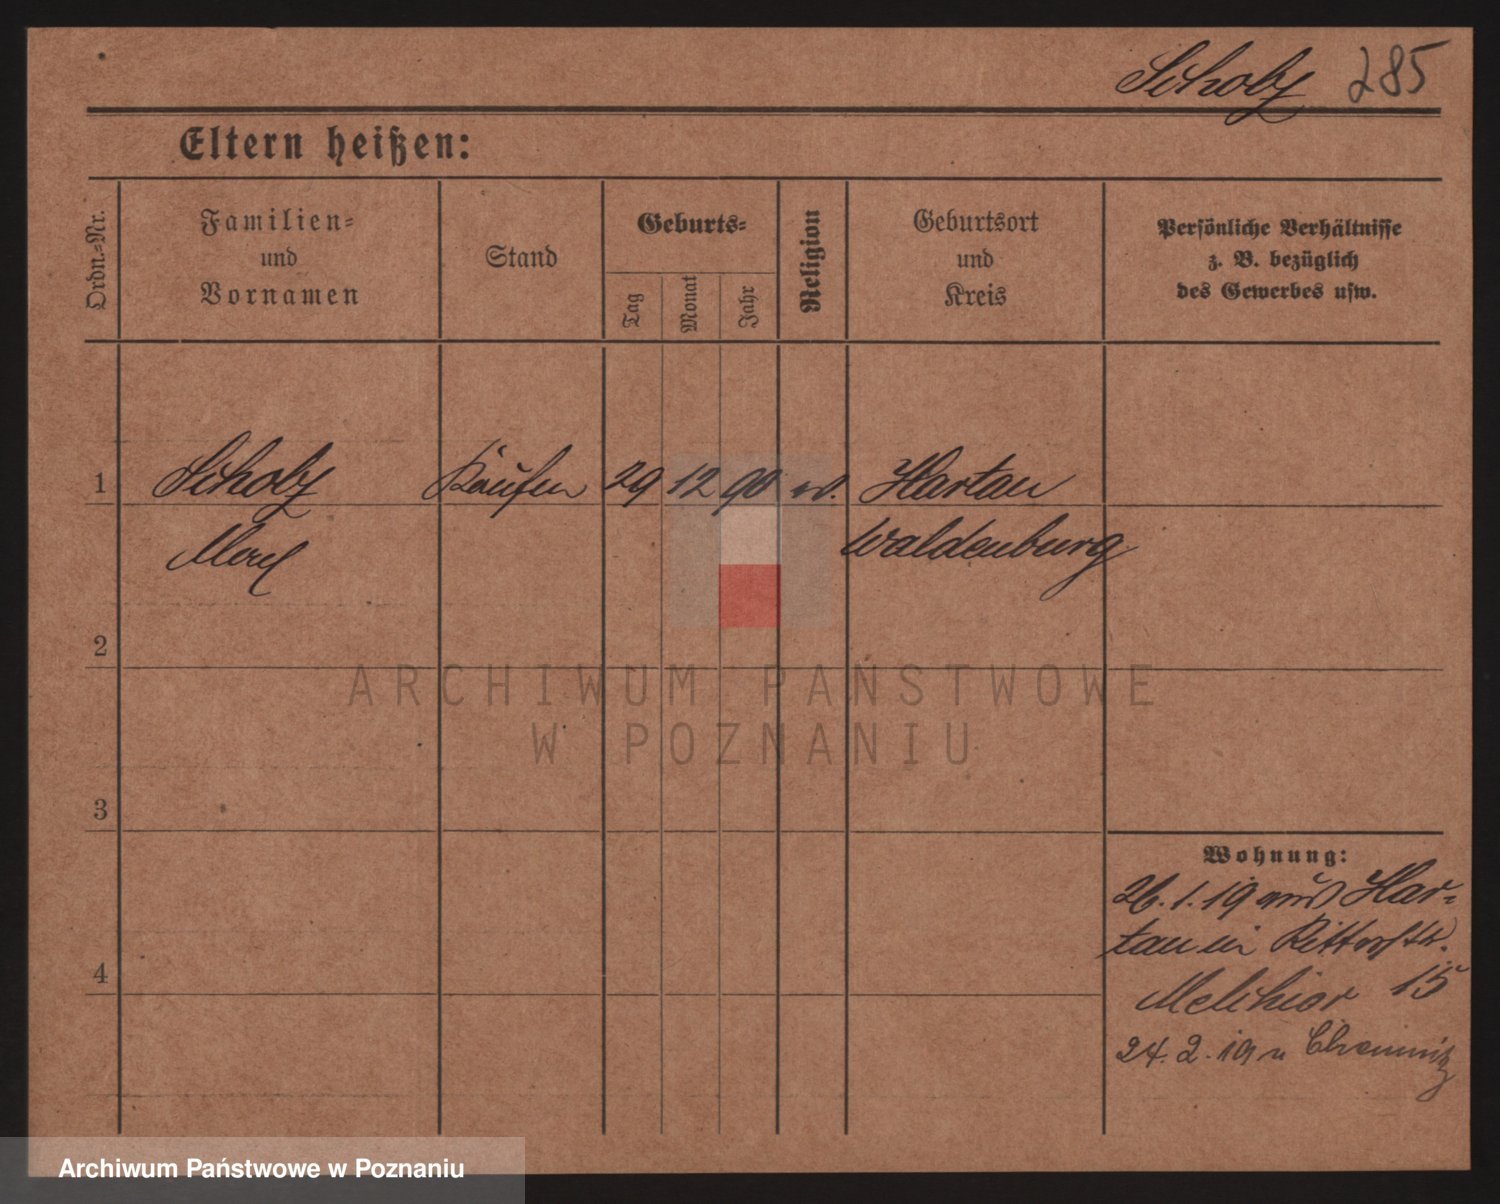 Scholz 285
Eltern heißen:
Ordn.-Nr.
Familien-
und
Vornamen
Stand
Geburts-
Tag
Monat
Jahr
Religion
Geburtsort
und
Kreis
Persönliche Verhältnisse
z. B. bezüglich
des Gewerbes usw.
1 Scholz Kaufm 29 12 90 ev. Hartau
Max Waldenburg
2
3
4
Wohnung:
26. 1. 19 aus Har-
tau in Ritterstr.
15
Melchior
24. 2. 19 n Chemnitz
ARCHIWUM PAŃSTWOWE
W POZNANIU
Archiwum Państwowe w Poznaniu